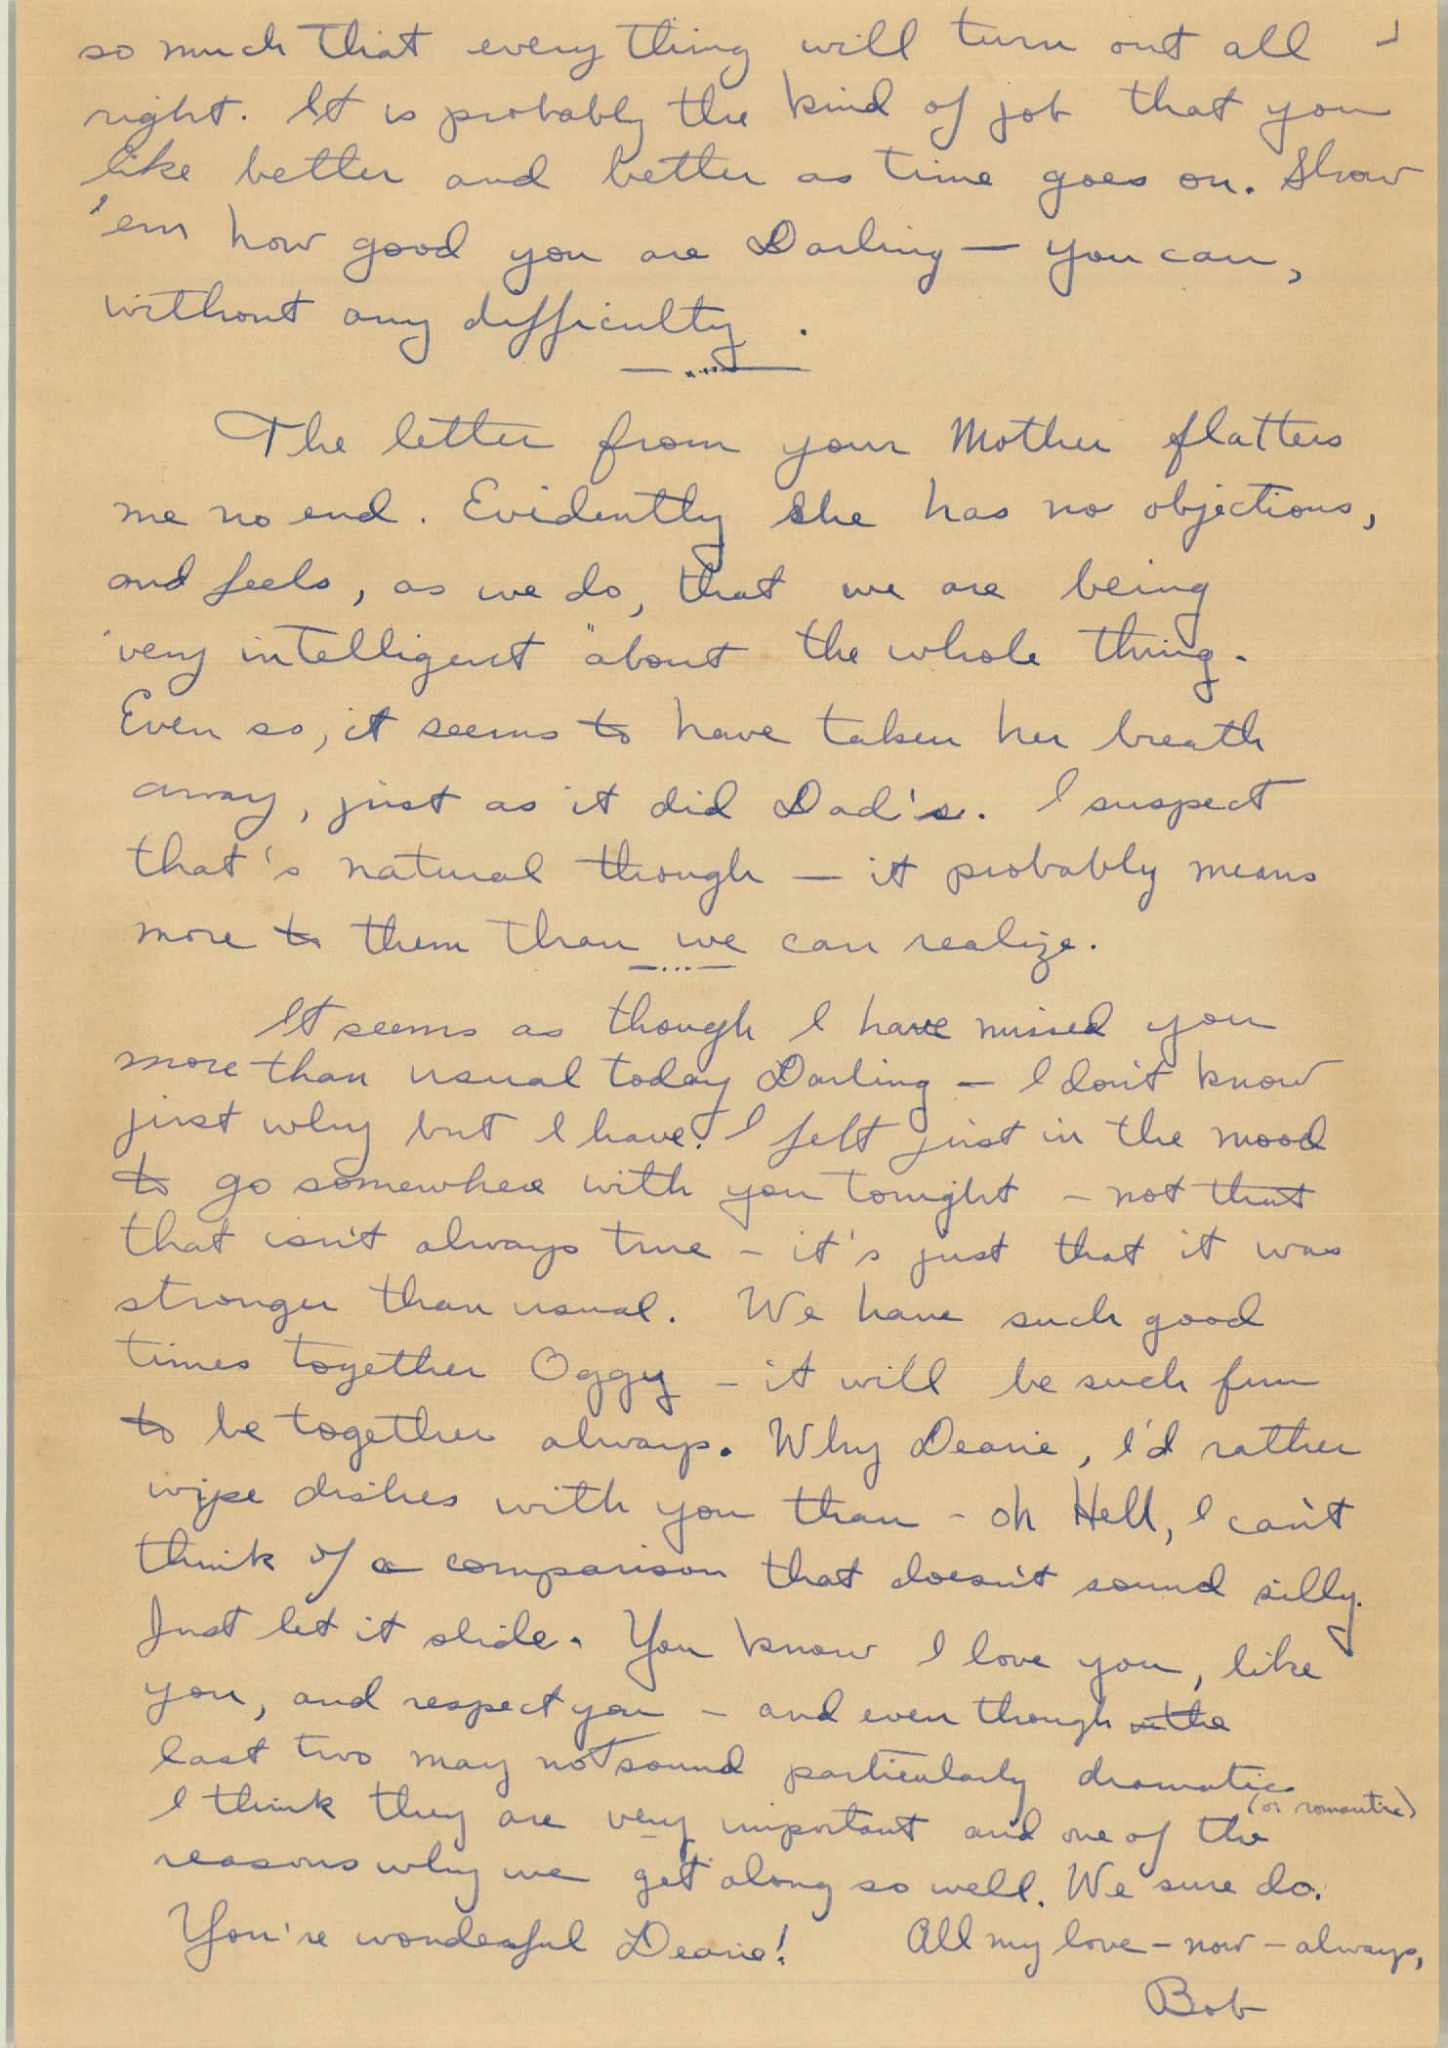 so much that every thing will turn out all
right. It is probably the kind of job that you
like better and better as time goes on. Show
'em how good you are Darling — you can,
without any difficulty.
The letter from your Mother flatters
me no end. Evidently she has no objections,
and feels, as we do, that we are being
"very intelligent" about the whole thing.
Even so, it seems to have taken her breath
away, just as it did Dad's. I suspect
that's natural though — it probably means
more to them than we can realize.
It seems as though I have missed you
more than usual today Darling — I don't know
just why but I have. I felt just in the mood
to go somewhere with you tonight — not that
that isn't always true — it's just that it was
stronger than usual. We have such good
times together Oggy — it will be such fun
to be together always. Why Dearie, I'd rather
wipe dishes with you than - oh Hell, I can't
think of a comparison that doesn't sound silly.
Just let it slide. You know I love you, like
you, and respect you — and even though the
last two may not sound particularly dramatic
(or romantic)
I think they are very important and one of the
reasons why we get along so well. We sure do.
You're wonderful Dearie! All my love — now — always,
Bob